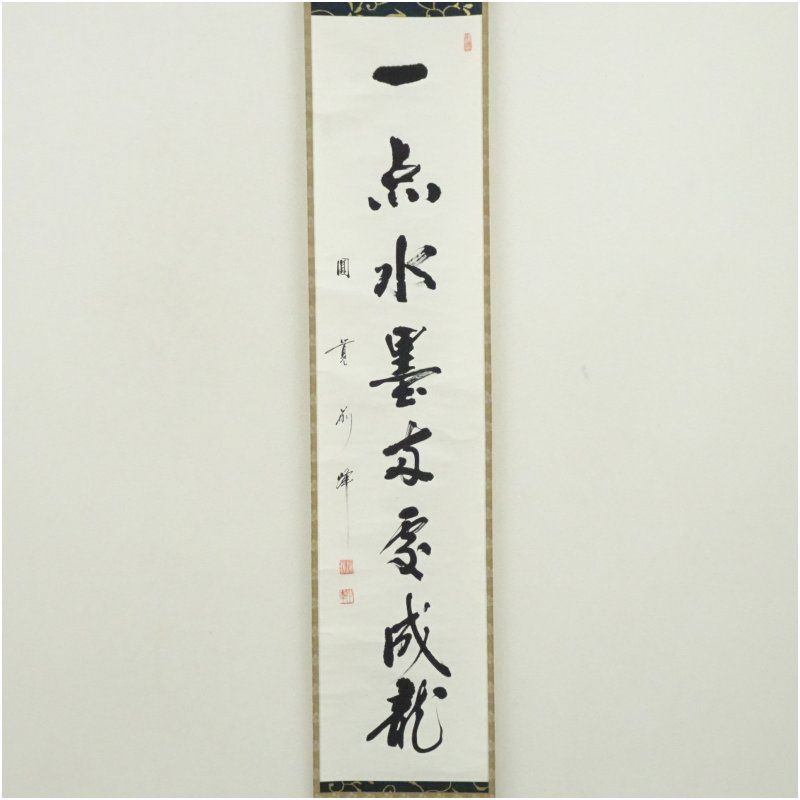 一点水墨両處成龍
圓覚別峰